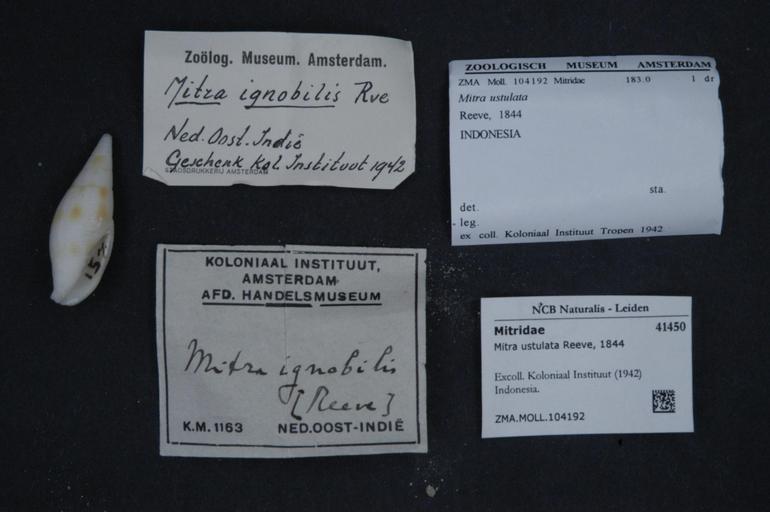 Zoölog. Museum. Amsterdam.
Mitra ignobilis Rve
Ned. Oost. Indië
Geschenk Kol. Instituut 1942
STADSDRUKKERIJ AMSTERDAM
ZOOLOGISCH MUSEUM AMSTERDAM
ZMA Moll. 104192 Mitridae 183.0 1 dr
Mitra ustulata
Reeve, 1844
INDONESIA
sta.
det.
leg.
ex coll. Koloniaal Instituut Tropen 1942
157
KOLONIAAL INSTITUUT,
AMSTERDAM
AFD. HANDELSMUSEUM
Mitra ignobilis
[Reeve]
K.M. 1163 NED. OOST-INDIË
NCB Naturalis - Leiden
Mitridae 41450
Mitra ustulata Reeve, 1844
Excoll. Koloniaal Instituut (1942)
Indonesia.
ZMA.MOLL.104192